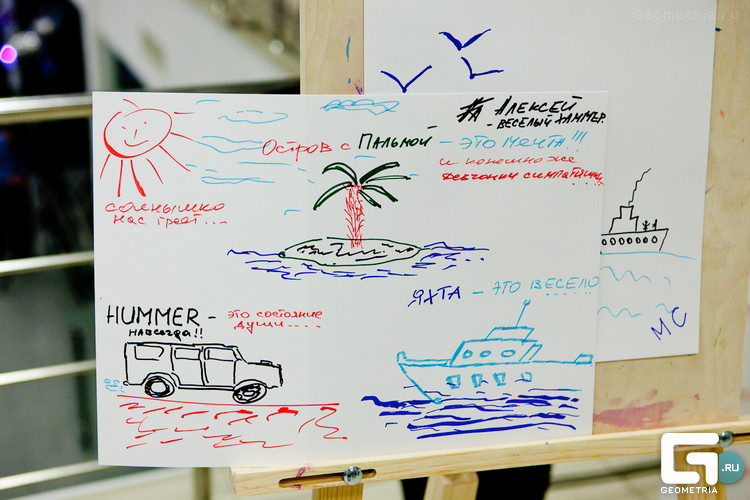 Geometria.ru
Я Алексей
- Весёлый Хаммер.
Остров с Пальмой - это мечта!!!
и конешно же
девчонки симпатичные...
Солнышко
нас греет...
Яхта - это весело
HUMMER - это состояние
навсегда!! души....
МС
G .RU
GEOMETRIA